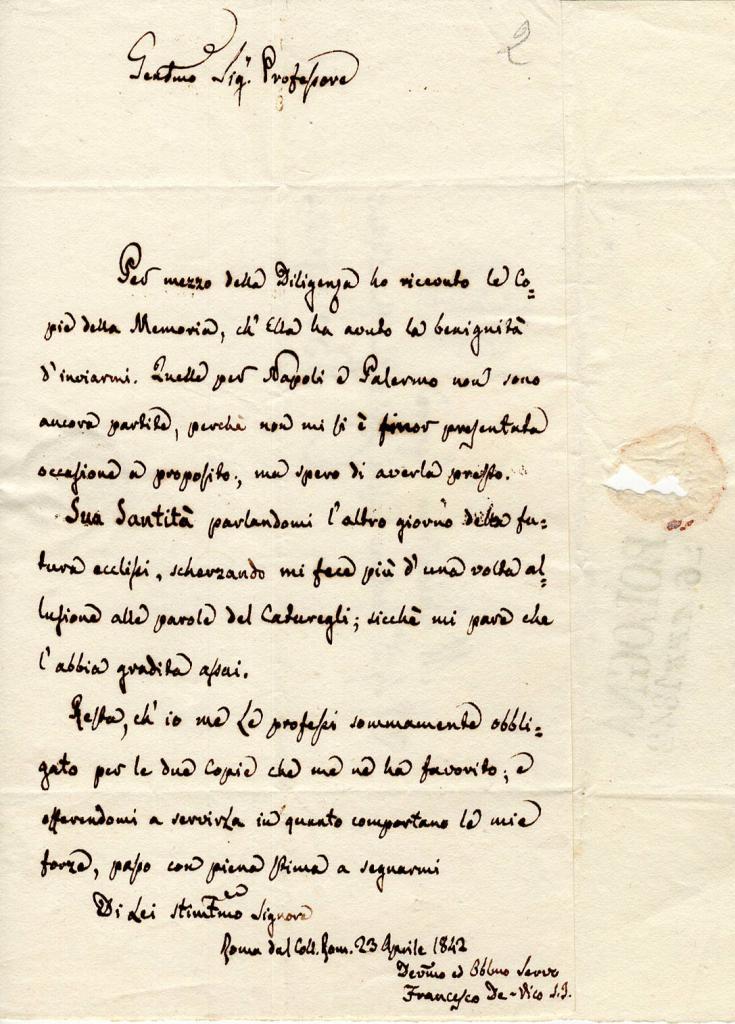 2
Gentmo Sigr. Professore
Per mezzo della Diligenza ho ricevuto le Co=
pie della Memoria, ch' Ella ha avuto la benignità
d'inviarmi. Quelle per Napoli e Palermo non sono
ancora partite, perchè non mi si è finor presentata
occasione a proposito, ma spero di averla presto.
Sua Santità parlandomi l'altro giorno della fu=
tura ecclissi, scherzando mi fece più d'una volta al=
lusione alle parole del Caturegli; sicchè mi pare che
l'abbia gradita assai.
Resta, ch' io me Le professi sommamente obbli=
gato per le due Copie che me ne ha favorito; e
offerendomi a servirLa in quanto comportano le mie
forze, passo con piena stima a segnarmi
Di Lei stimtmo Signore
Roma dal Coll. Rom. 23 Aprile 1842
Devmo ed Obbmo Servo
Francesco De-Vico S.J.
BOLOGNA